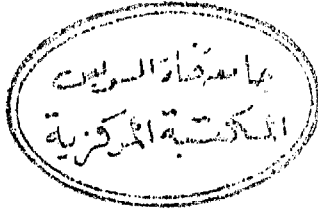 جامعة قناة السويس
المكتبة المركزية